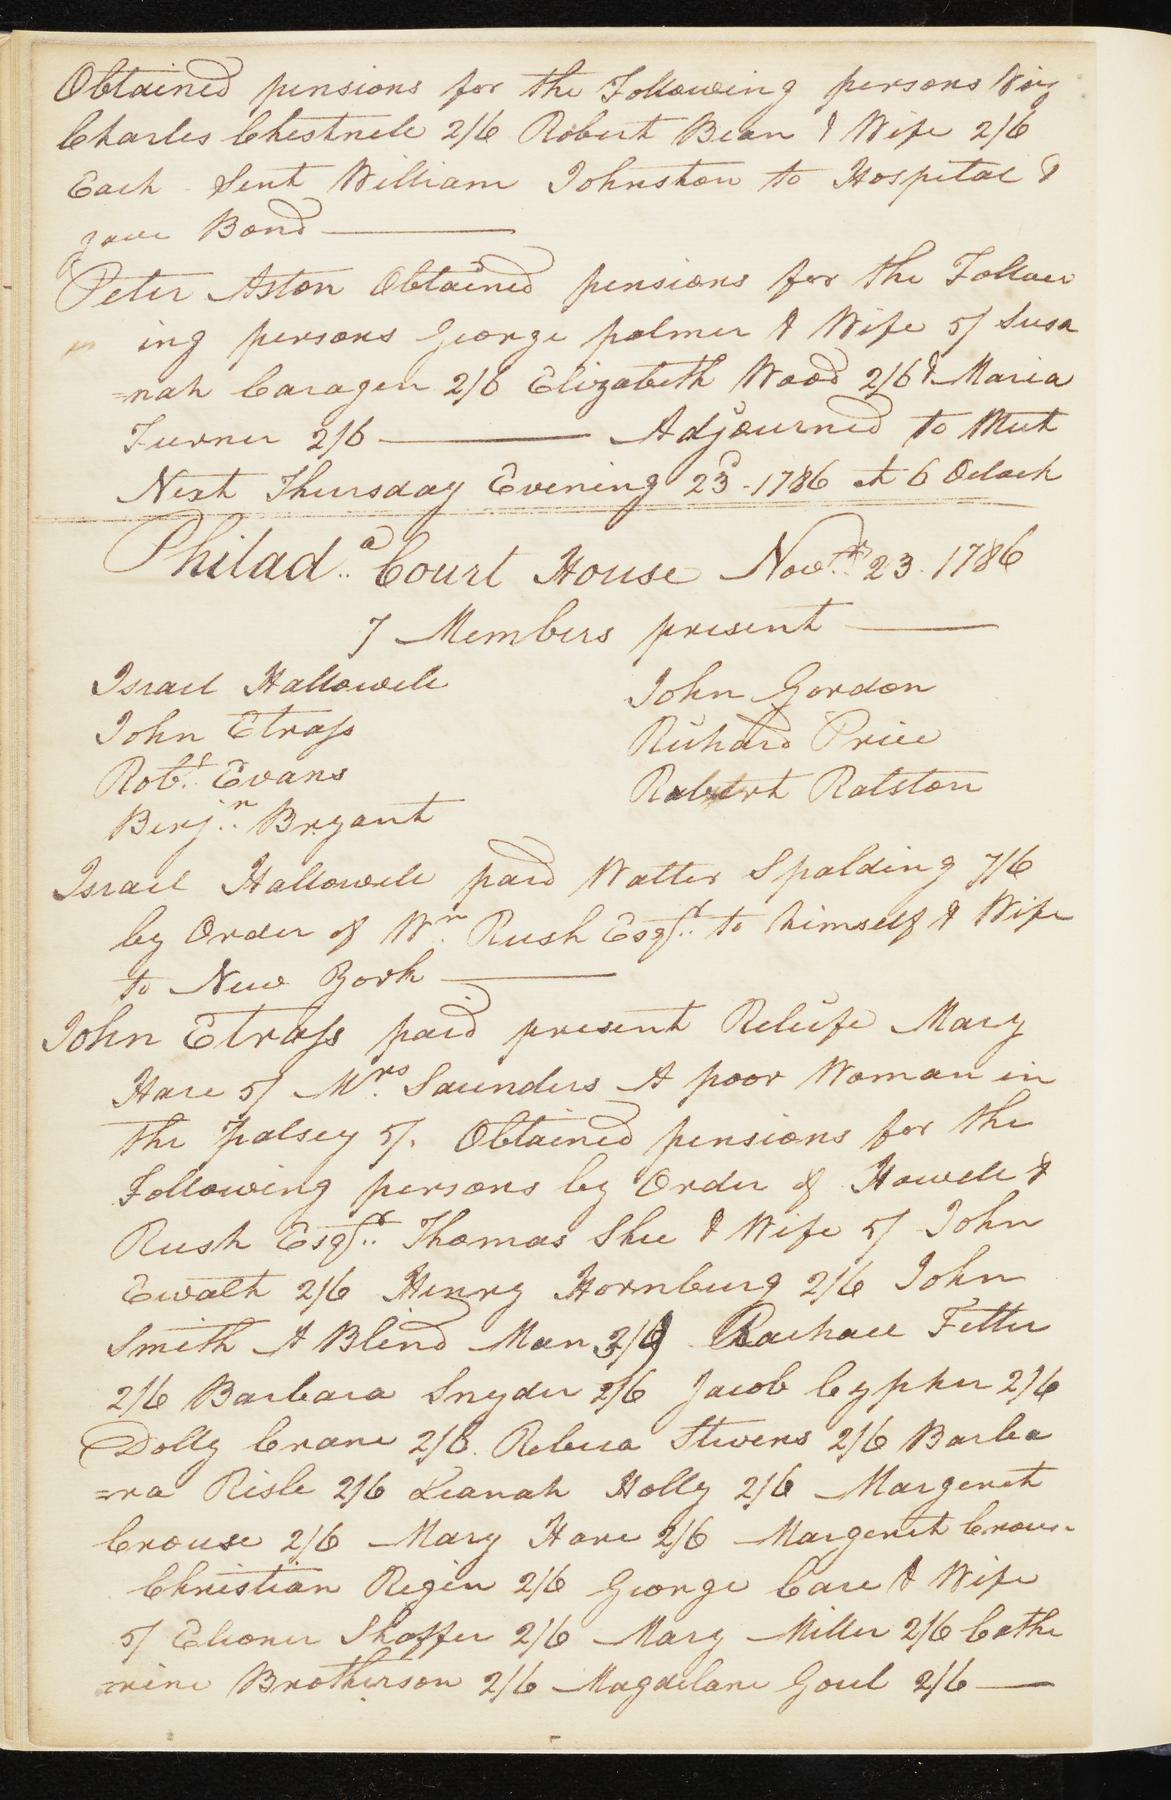 Obtained pensions for the Following persons Viz
Charles Chestnele 2/6 Robert Bean & Wife 2/6
Each Sent William Johnston to Hospital &
gave Bond
Peter Aston Obtained pensions for the Follow
ing persons George palmer & Wife 5/ Susa
=nah Caragen 2/6 Elizabeth Wood 2/6 & Maria
Turner 2/6 Adjourned to Meet
Next Thursday Evening 23d 1786 at 6 Oclock
Philada Court House Novr 23. 1786
7 Members present
Israel Hallowell John Gordon
John Strass Richard Price
Robt. Evans Robert Ralston
Benjn Bryant
Israel Hallowell paid Walter Spalding 7/6
by Order of Wm Rush Esqr to himself & Wife
to New York
John Strass paid present Releife Mary
Hare 5/ Mrs Saunders A poor Woman in
the palsey 5/. Obtained pensions for the
Following persons by Order of Howell &
Rush Esqrs Thomas Shee & Wife 5/ John
Ewalt 2/6 Henry Hornburg 2/6 John
Smith A Blind Man Rachael Fetter
2/6 Barbara Snyder 2/6 Jacob Cypher 2/6
Dolly Crane 2/6. Rebeca Stevens 2/6 Barba
=ra Risle 2/6 Leanah Holly 2/6 Margeret
Crouse 2/6 Mary Hare 2/6 Margeret Crouse
Christian Regen 2/6 George Care & Wife
5/ Elioner Shaffer 2/6 Mary Miller 2/6 Cathe
=rine Brotherson 2/6 Magdelane Goul 2/6